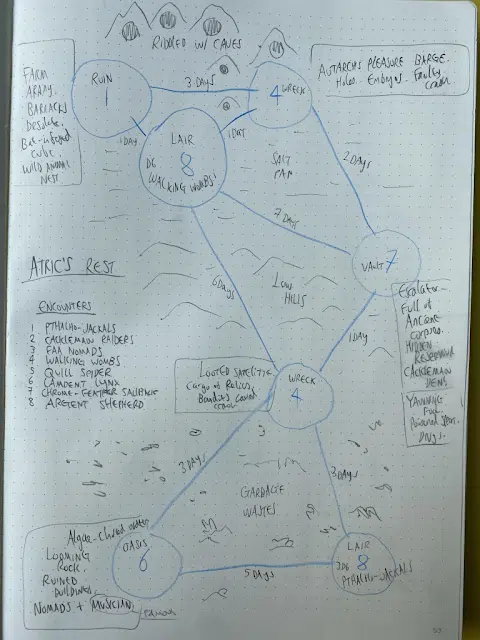 RIDDLED W/ CAVES
FARM
ARRAY.
BARRACKS
Desolate.
Bat-infested
cubic.
WILD ANIMAL
NEST
RUIN
1
3 DAYS
4 WRECK
AUTARCH'S PLEASURE BARGE.
Holos. Embryos. Faulty
1 DAY
1 DAY
LAIR
8
D6
WALKING WOMBS
SALT
PAN
2 DAYS
7 DAYS
VAULT 7
ATRIC'S REST
6 DAYS
LOW
HILLS
1 DAY
Escalator.
Full of
Ancient
corpses.
HIDDEN
CACKLEMAN
HENS
YAWNING
Poisoned
DRUGS.
ENCOUNTERS
1 PTHACHO-JACKALS
2 CACKLEMAN RAIDERS
3 FAA NOMADS
4 WALKING WOMBS
5 QUILL SPIDER
6 LAMBENT LYNX
7 CHROME-FEATHER
8 ARGENT SHEPHERD
LOOTED SATELLITE
Cargo of Relics.
Bandits
WRECK
4
3 DAYS
3 DAYS
GARBAGE
WASTES
Algae-choked water
LOOMING
ROCK.
RUINED
BUILDINGS.
NOMADS + MUSICIAN
OASIS
6
5 DAYS
LAIR
8
3D6
PTHACHO-JACKALS